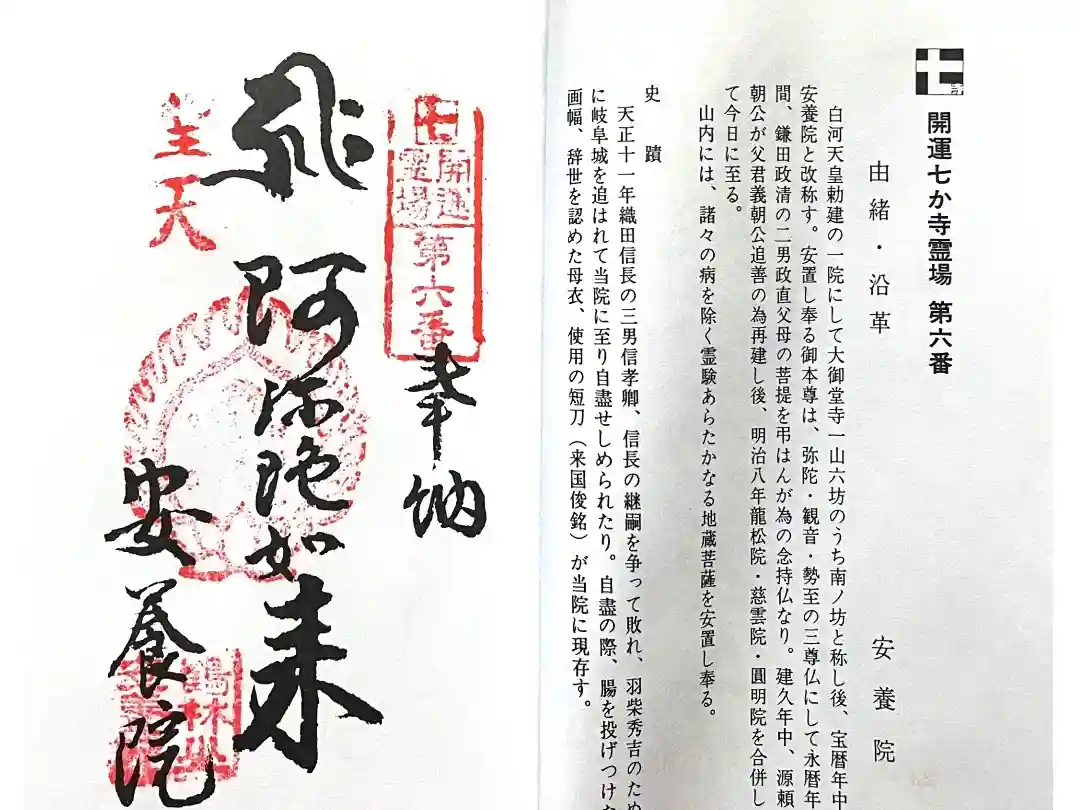 開運七か寺霊場 第六番
由緒・沿革 安養院
白河天皇勅建の一院にして大御堂寺一山六坊のうち南ノ坊と称し後、宝暦年中
安養院と改称す。安置し奉る御本尊は、弥陀・観音・勢至の三尊仏にして永暦年
間、鎌田政清の二男政直父母の菩提を弔はんが為の念持仏なり。建久年中、源頼
朝公が父君義朝公追善の為再建し後、明治八年龍松院・慈雲院・圓明院を合併し
て今日に至る。
山内には、諸々の病を除く霊験あらたかなる地蔵菩薩を安置し奉る。
史蹟
天正十一年織田信長の三男信孝卿、信長の継嗣を争って敗れ、羽柴秀吉のため
に岐阜城を追はれて当院に至り自盡せしめられたり。自盡の際、腸を投げつけた
画幅、辞世を認めた母衣、使用の短刀（来国俊銘）が当院に現存す。
七
開運
霊場
第六番
奉納
阿弥陀如来
安養院